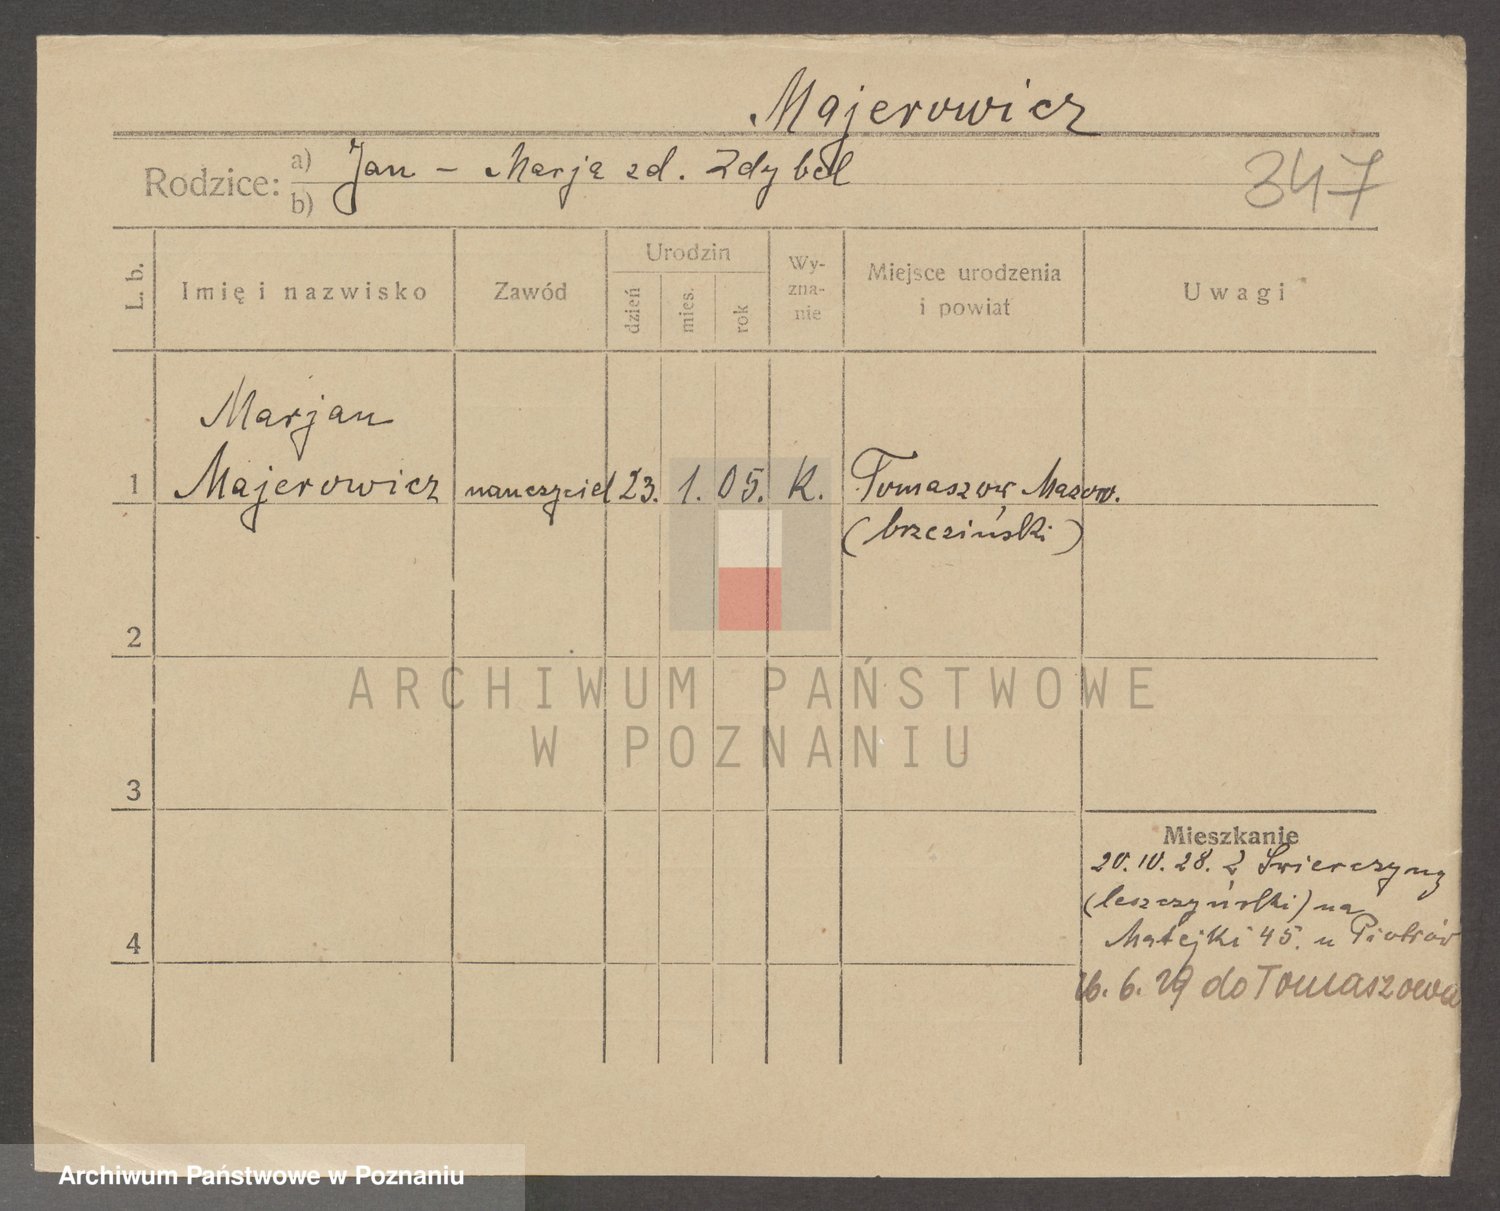 Majerowicz
Rodzice: a) Jan – Marja zd. Zdybel
b)
347
L. b.
Imię i nazwisko
Zawód
Urodzin
dzień
mies.
rok
Wy-
zna-
nie
Miejsce urodzenia
i powiat
Uwagi
Marjan
1 Majerowicz nauczyciel 23. 1. 05. K. Tomaszow Mazow.
(brzeziński)
2
3
4
Mieszkanie
20.IV.28. Z Świerczyny
(leszczyński) na
Matejki 45. u Piotrów
26. 6. 29 do Tomaszowa
ARCHIWUM PAŃSTWOWE
W POZNANIU
Archiwum Państwowe w Poznaniu